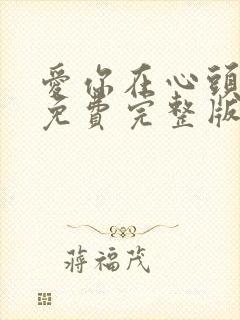 愛你在心頭
免費完整版
蔣福茂